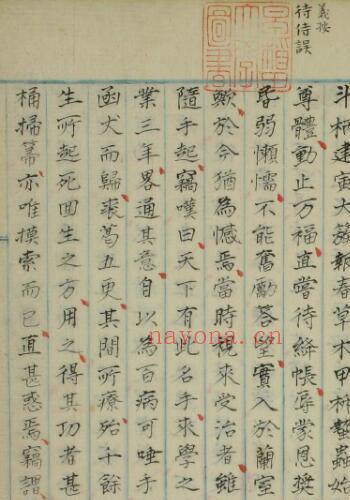 義按
待侍誤
斗柄建寅大簇報春草木甲柝蟄蟲始
尊體動止万福直嘗待絳帳辱蒙恩奨
昏弱懶懦不能奮勵答望實入於蘭室
於今猶為憾焉當時視來受治者雖
隨手起竊嘆曰天下有此名手來學之
業三年畧通其意自以為百病可唾手
函丈而歸裘葛五更其間所療殆千餘
生所起死回生之方用之得其功者甚
桶掃箒亦唯摸索而已直甚惑焉竊謂
nayona.cn